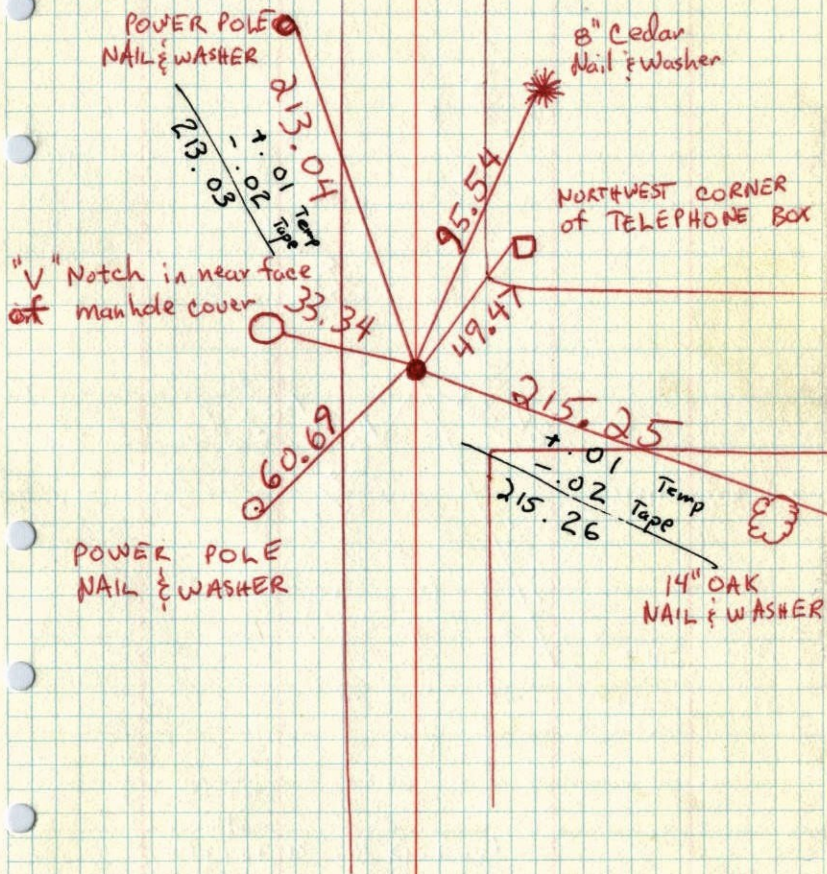 POWER POLE
NAIL & WASHER
213.04
+.01 Temp
-.02 Tape
213.03
8" Cedar
Nail & Washer
95.54
NORTHWEST CORNER
of TELEPHONE BOX
49.47
"V" Notch in near face
of manhole cover
33.34
60.69
POWER POLE
NAIL & WASHER
215.25
+.01 Temp
-.02 Tape
215.26
14" OAK
NAIL & WASHER